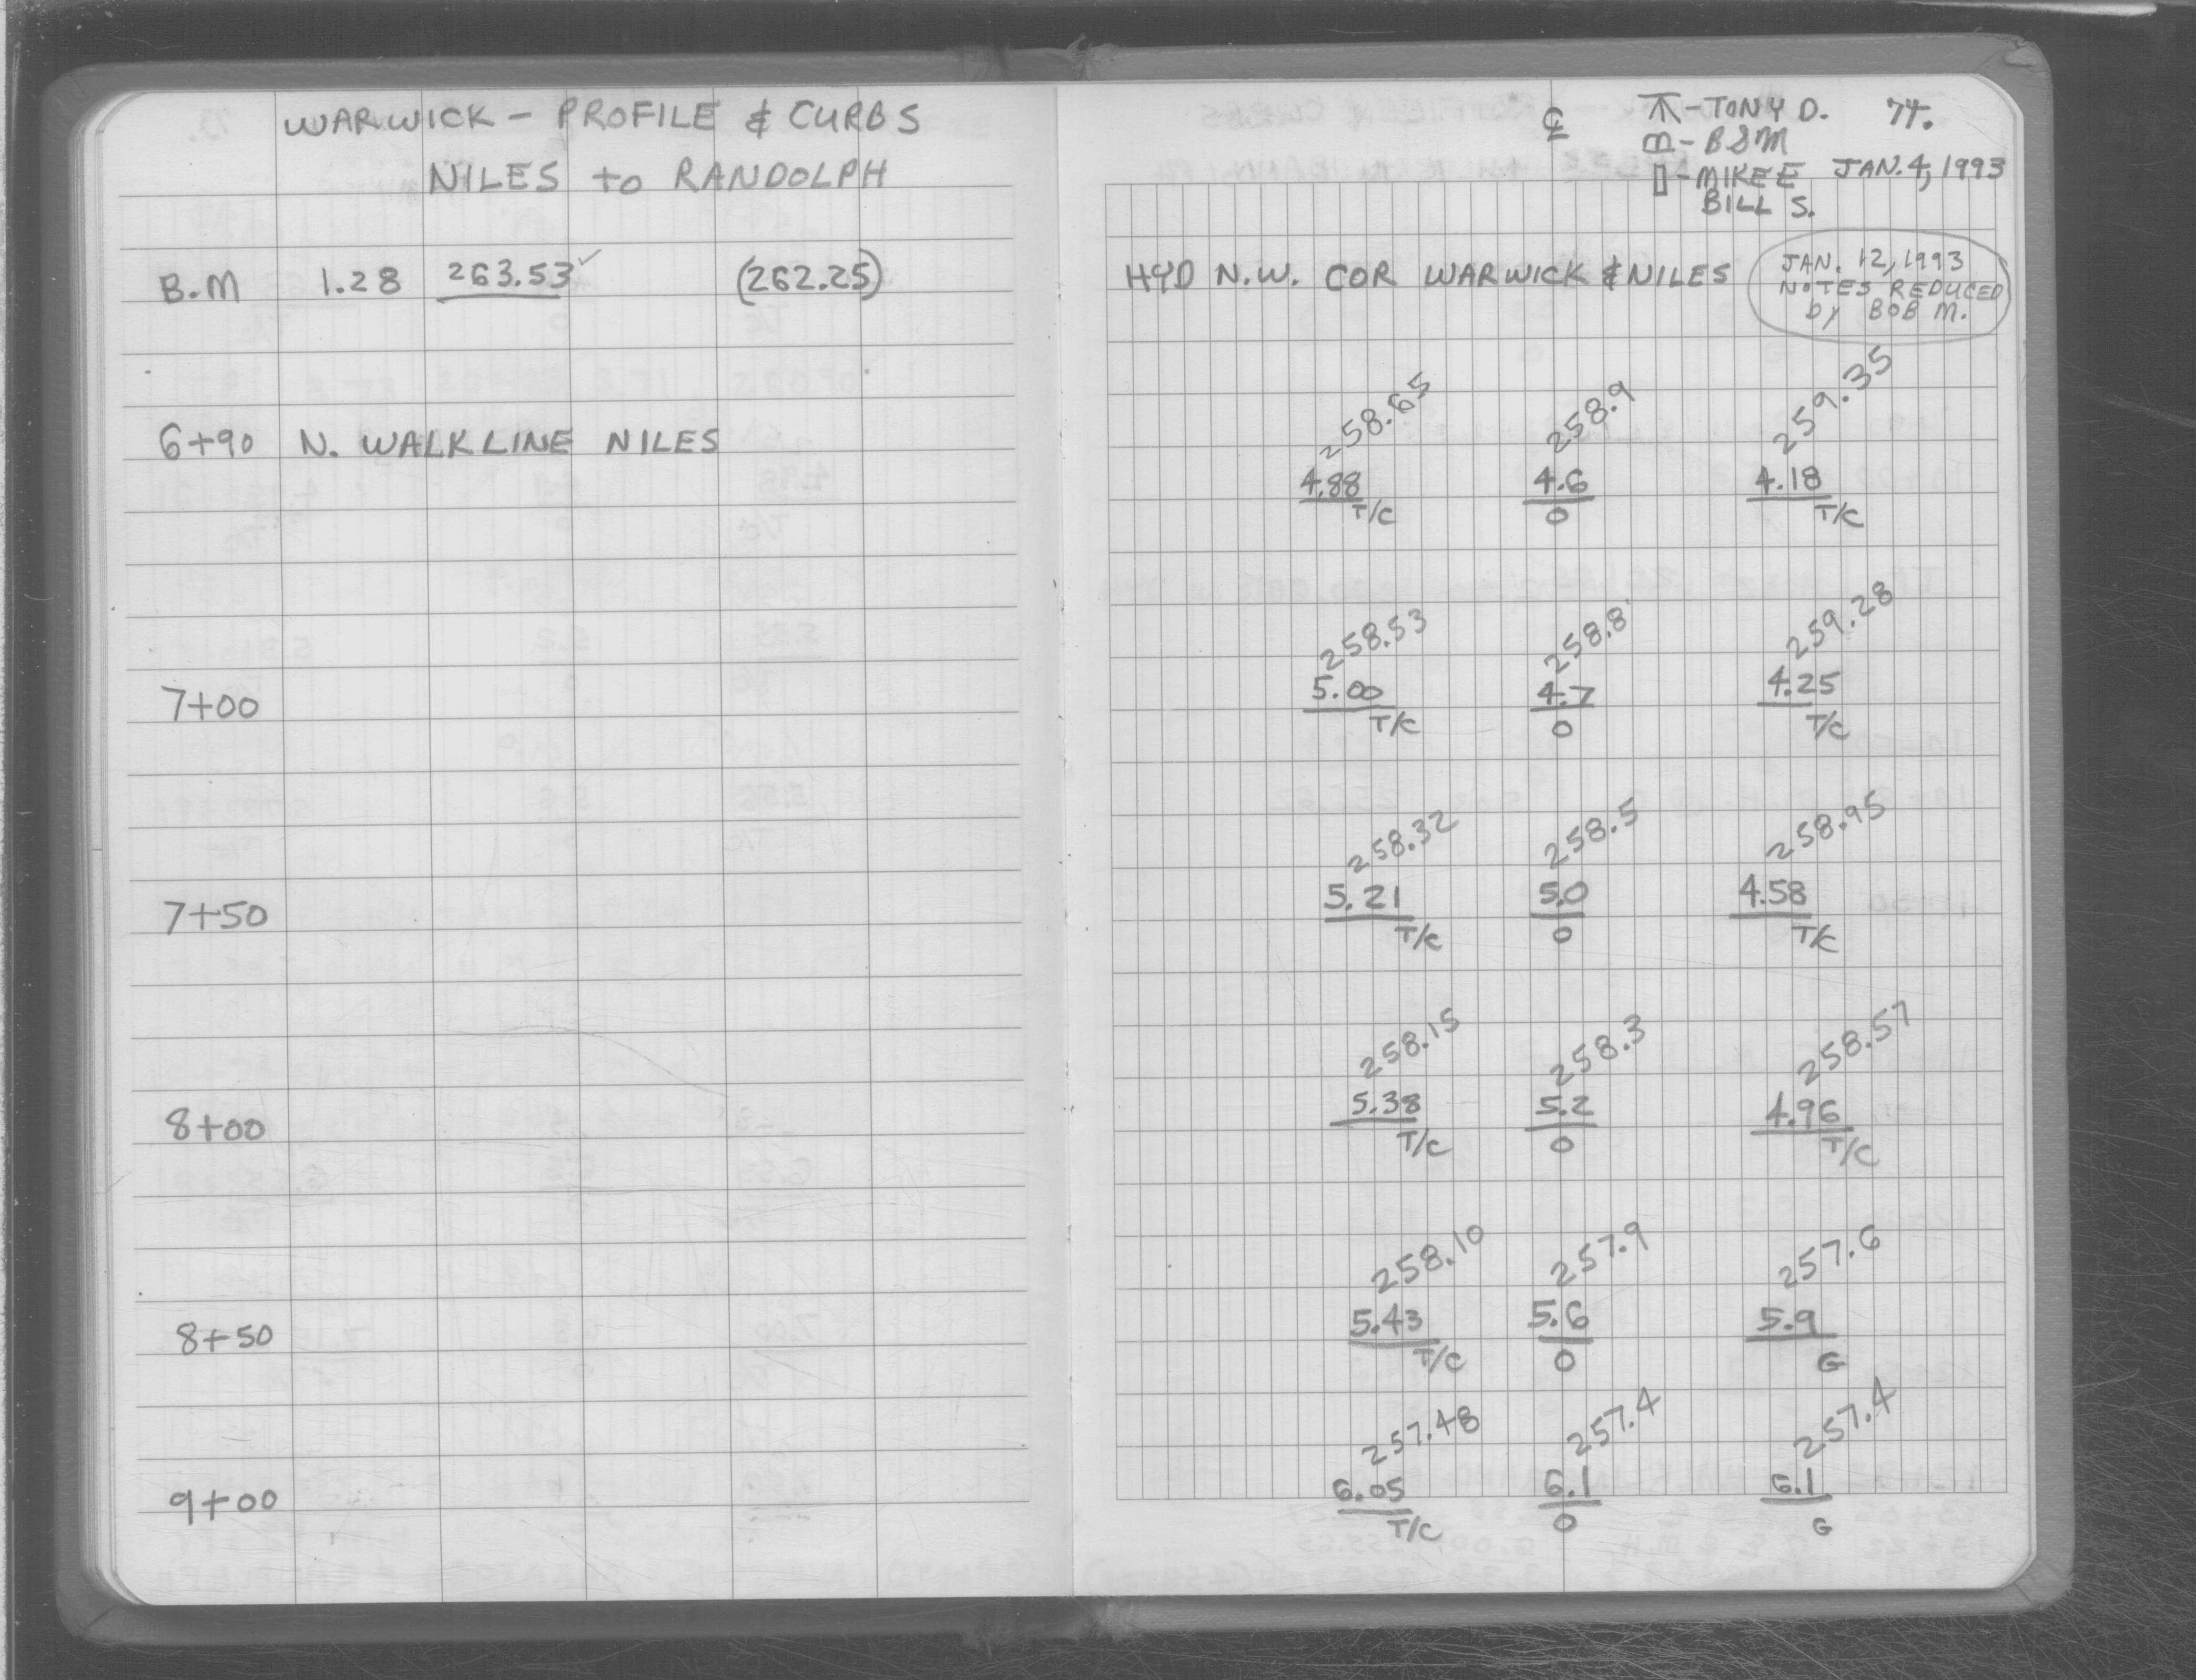 WARWICK - PROFILE & CURBS
NILES to RANDOLPH
B.M 1.28 263.53 ✓ (262.25)
6+90 N. WALKLINE NILES
7+00
7+50
8+00
8+50
9+00
℄ - TONY D. 74.
- BSM
- MIKE E JAN. 4, 1993
BILL S.
HYD N.W. COR WARWICK & NILES
JAN. 12, 1993
NOTES REDUCED
by BOB M.
258.65 258.9 259.35
4.88 4.6 4.18
T/C 0 T/C
258.53 258.8 259.28
5.00 4.7 4.25
T/C 0 T/C
258.32 258.5 258.95
5.21 5.0 4.58
T/C 0 T/C
258.15 258.3 258.57
5.38 5.2 4.96
T/C 0 T/C
258.10 257.9 257.6
5.43 5.6 5.9
T/C 0 G
257.48 257.4 257.4
6.05 6.1 6.1
T/C 0 G